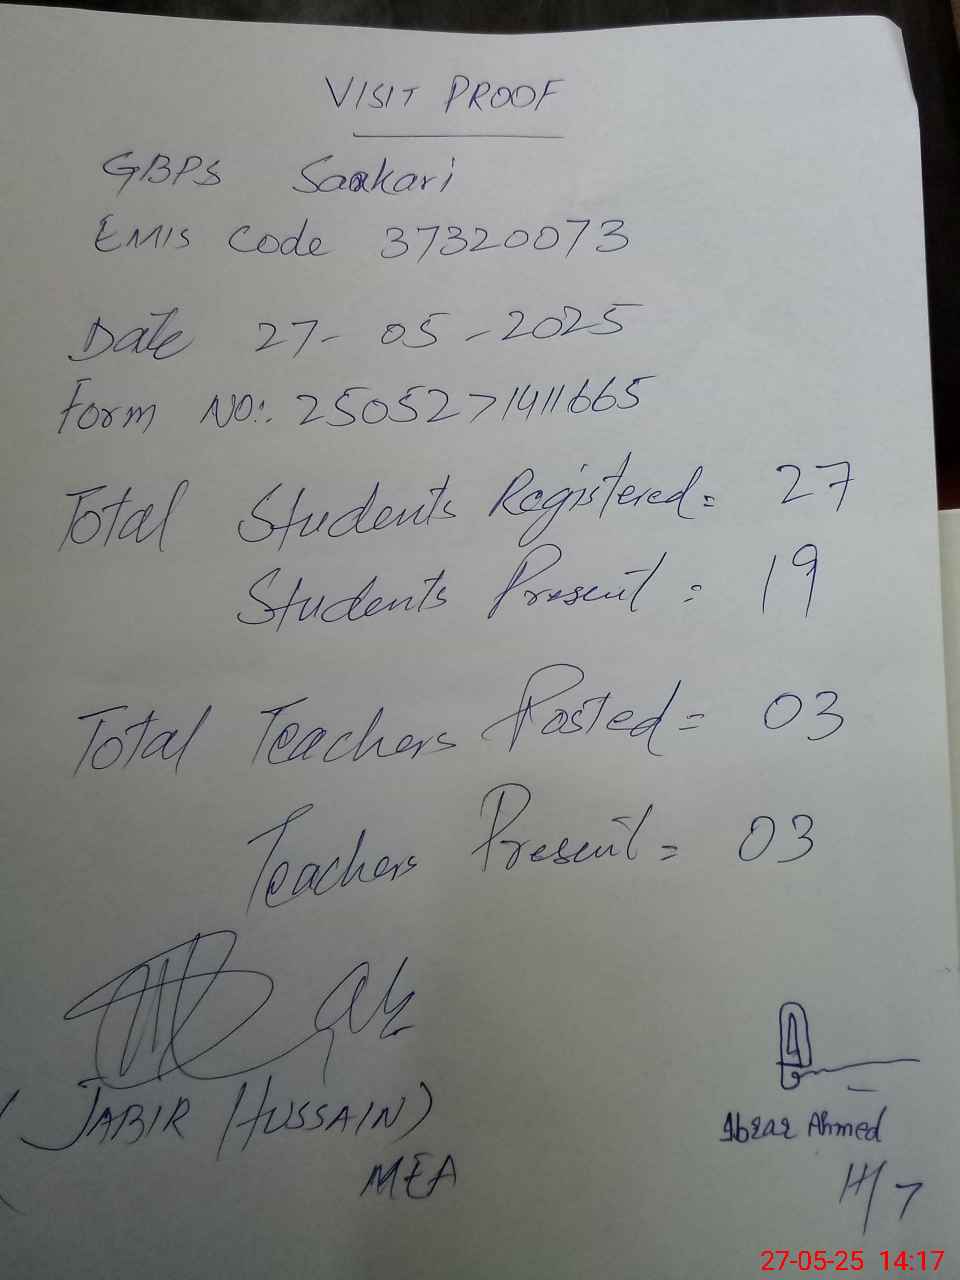 VISIT PROOF
GBPS Saakari
EMIS Code 37320073
Date 27-05-2025
Form NO:. 2505271411665
Total Students Registered = 27
Students Present = 19
Total Teachers Posted = 03
Teachers Present = 03
(JABIR HUSSAIN)
MEA
Abrar Ahmed
H/T
27-05-25 14:17